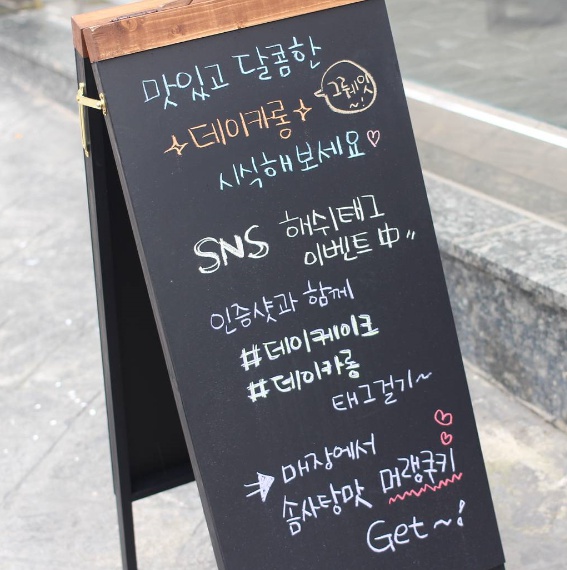 맛있고 달콤한
그뤠잇~!
데이카롱
시식해보세요♡
SNS 해쉬태그
이벤트 中"
인증샷과 함께
#데이케이크
#데이카롱
태그걸기~
매장에서
솜사탕맛 머랭쿠키
Get~!